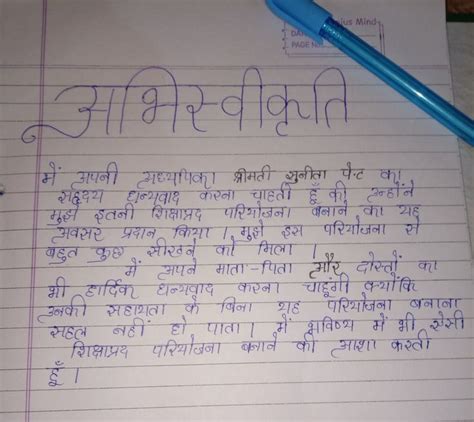 ius Mind
PAGE NO.
अभिस्वीकृति
में अपनी अध्यपिका श्रीमती सुनीता पेन्ट का
सहृदय धन्यवाद करना चाहती हूँ की उन्होंने
मुझे इतनी शिक्षाप्रद परियोजना बनाने का यह
अवसर प्रदान किया । मुझे इस परियोजना से
बहुत कुछ सीखने को मिला ।
में अपने माता-पिता और दोस्तों का
भी हार्दिक धन्यवाद करना चाहूंगी क्योंकि
उनकी सहायता के बिना यह परियोजना बनाना
सहल नहीं हो पाता । में भविष्य में भी ऐसी
शिक्षाप्रद परियोजना बनाने की आशा करती
हूँ ।